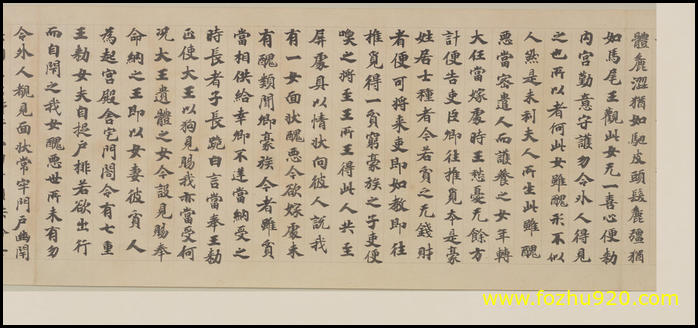 體麁澀猶如駞皮頭髮麁彊猶
如馬尾王觀此女无一喜心便勑
內宮勤意守護勿令外人得見
之也所以者何此女雖醜形不似
人然是末利夫人所生此雖醜
惡當密遣人而護養之女年轉
大任當嫁處時王愁憂无餘方
計便告吏臣卿往推覓本是豪
姓居士種者今若貧乏无錢財
者便可將來吏即如教即往
推覓得一貧窮豪族之子吏便
喚之將至王所王得此人共至
屏處具以情狀向彼人說我
有一女面狀醜惡今欲嫁處未
有醜類聞卿豪族今者雖貧
當相供給幸卿不逆當納受之
時長者子長跪白言當奉王勑
正使大王以狗見賜我亦當受何
況大王遺體之女今設見賜奉
命納之王即以女妻彼貧人
為起宮殿舍宅門閤令有七重
王勑女夫自捉戶排若欲出行
而自閇之我女醜惡世所未有勿
令外人覩見面狀常牢門戶幽閇
www.fozhu920.com